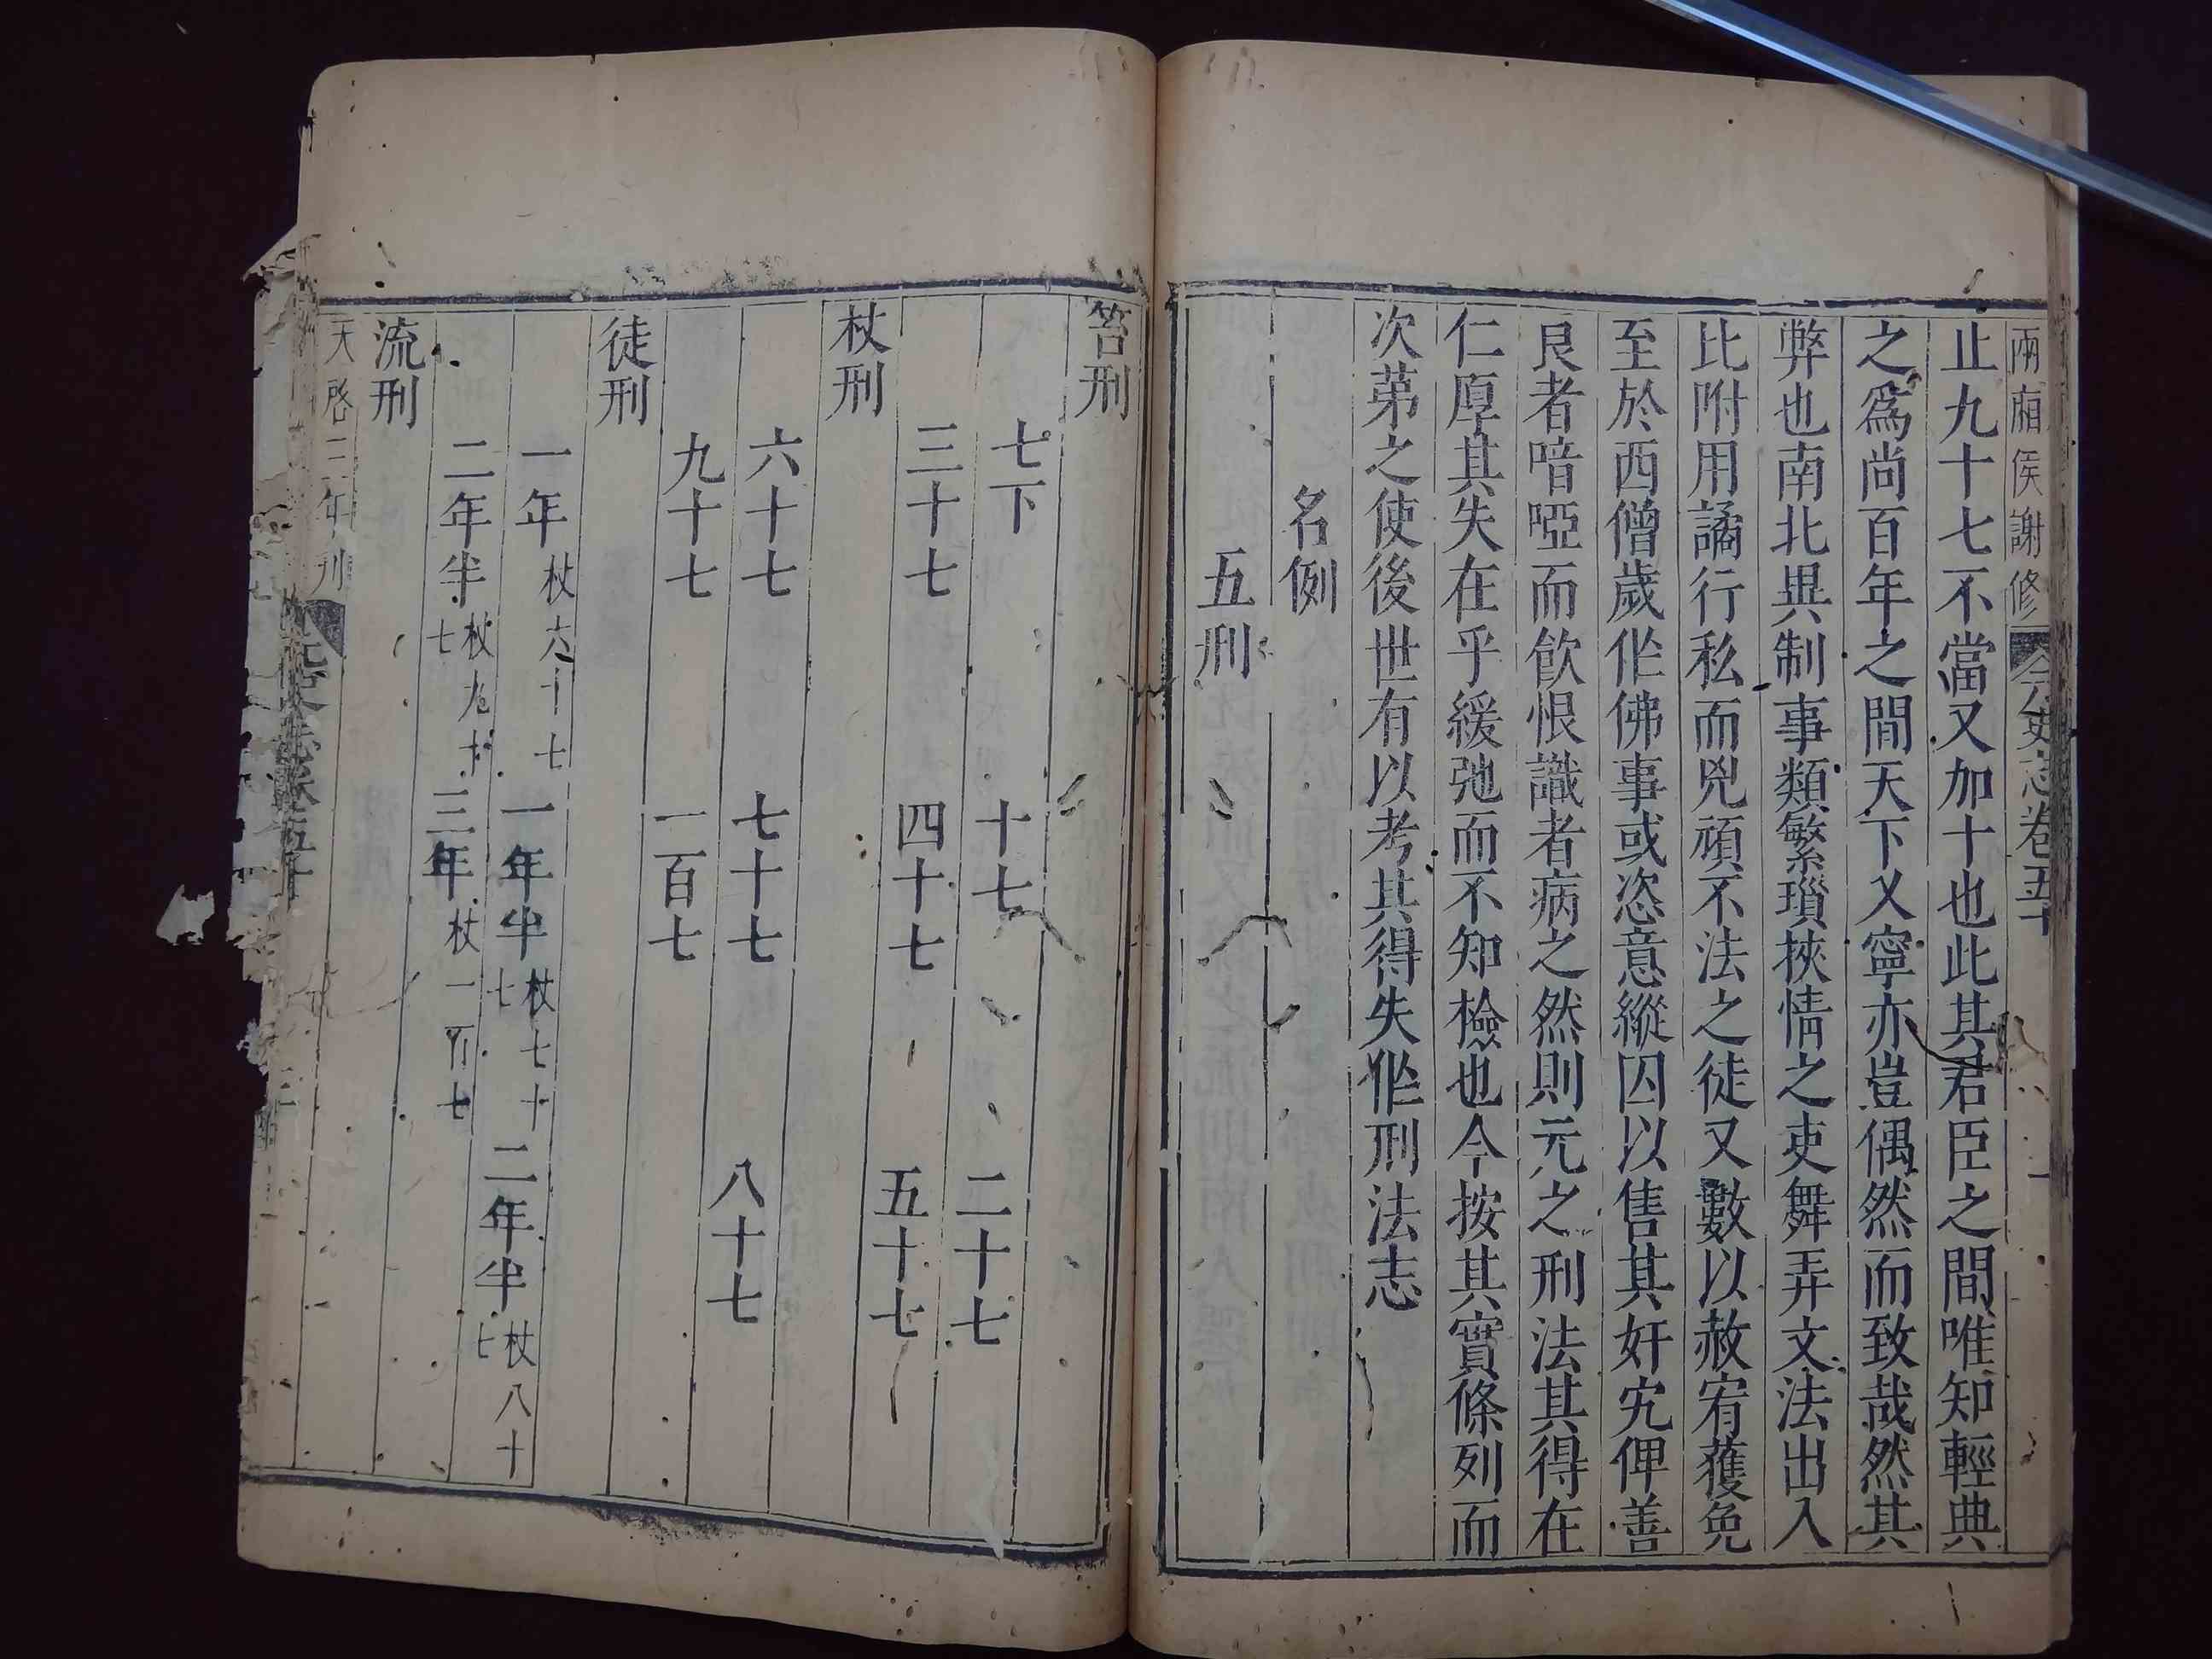 兩廂侯謝修
元史志卷五十
止九十七不當又加十也此其君臣之間唯知輕典
之爲尚百年之間天下乂寧亦豈偶然而致哉然其
弊也南北異制事類繁瑣挾情之吏舞弄文法出入
比附用譎行私而兇頑不法之徒又數以赦宥獲免
至於西僧歲作佛事或恣意縱囚以售其奸宄俾善
良者喑啞而飲恨識者病之然則元之刑法其得在
仁厚其失在乎緩弛而不知檢也今按其實條列而
次第之使後世有以考其得失作刑法志
名例
五刑
笞刑
七下 十七 二十七
三十七 四十七 五十七
杖刑
六十七 七十七 八十七
九十七 一百七
徒刑
一年杖六十七 一年半杖七十七 二年半杖八十七
二年半杖九十七 三年杖一百七
流刑
天啓三年刊